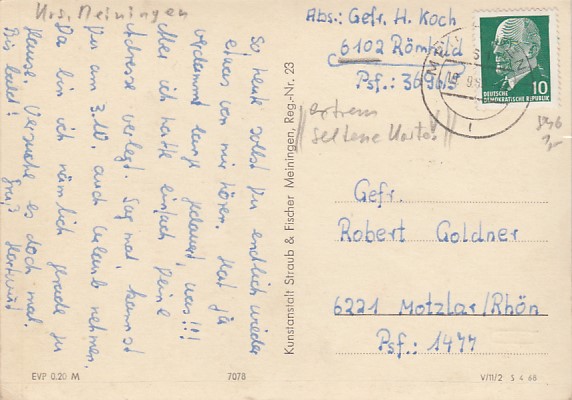 Krs. Meiningen
So, heute sollst Du endlich wieder
etwas von mir hören. Hat ja
verdammt lange gedauert, was!!!
Aber ich hatte einfach Deine
Adresse verlegt. Sag mal, kannst
Du am 3.10. auch Urlaub nehmen.
Da bin ich nämlich gerade zu
Hause. Versuche es doch mal.
Bis bald!
Gruß
Hartmut
EVP 0.20 M
7078
Kunstanstalt Straub & Fischer Meiningen, Reg.-Nr. 23
Abs.: Gefr. H. Koch
6102 Römhild
Psf.: 36965
extrem
seltene Karte
DEUTSCHE
DEMOKRATISCHE REPUBLIK
10
Gefr.
Robert Goldner
6221 Motzlar/Rhön
Psf.: 1477
V/11/2 S 4 68